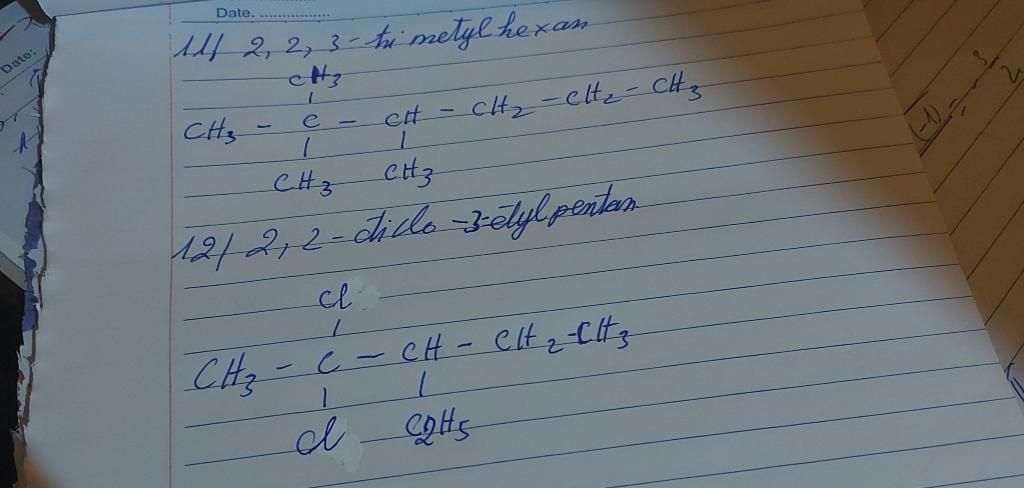 Date. ................
Date:
11/ 2, 2, 3 - tri metyl hexan
CH3
CH3 - C - CH - CH2 - CH2 - CH3
CH3 CH3
12/ 2, 2 - diclo - 3-etyl pentan
Cl
CH3 - C - CH - CH2 - CH3
Cl C2H5